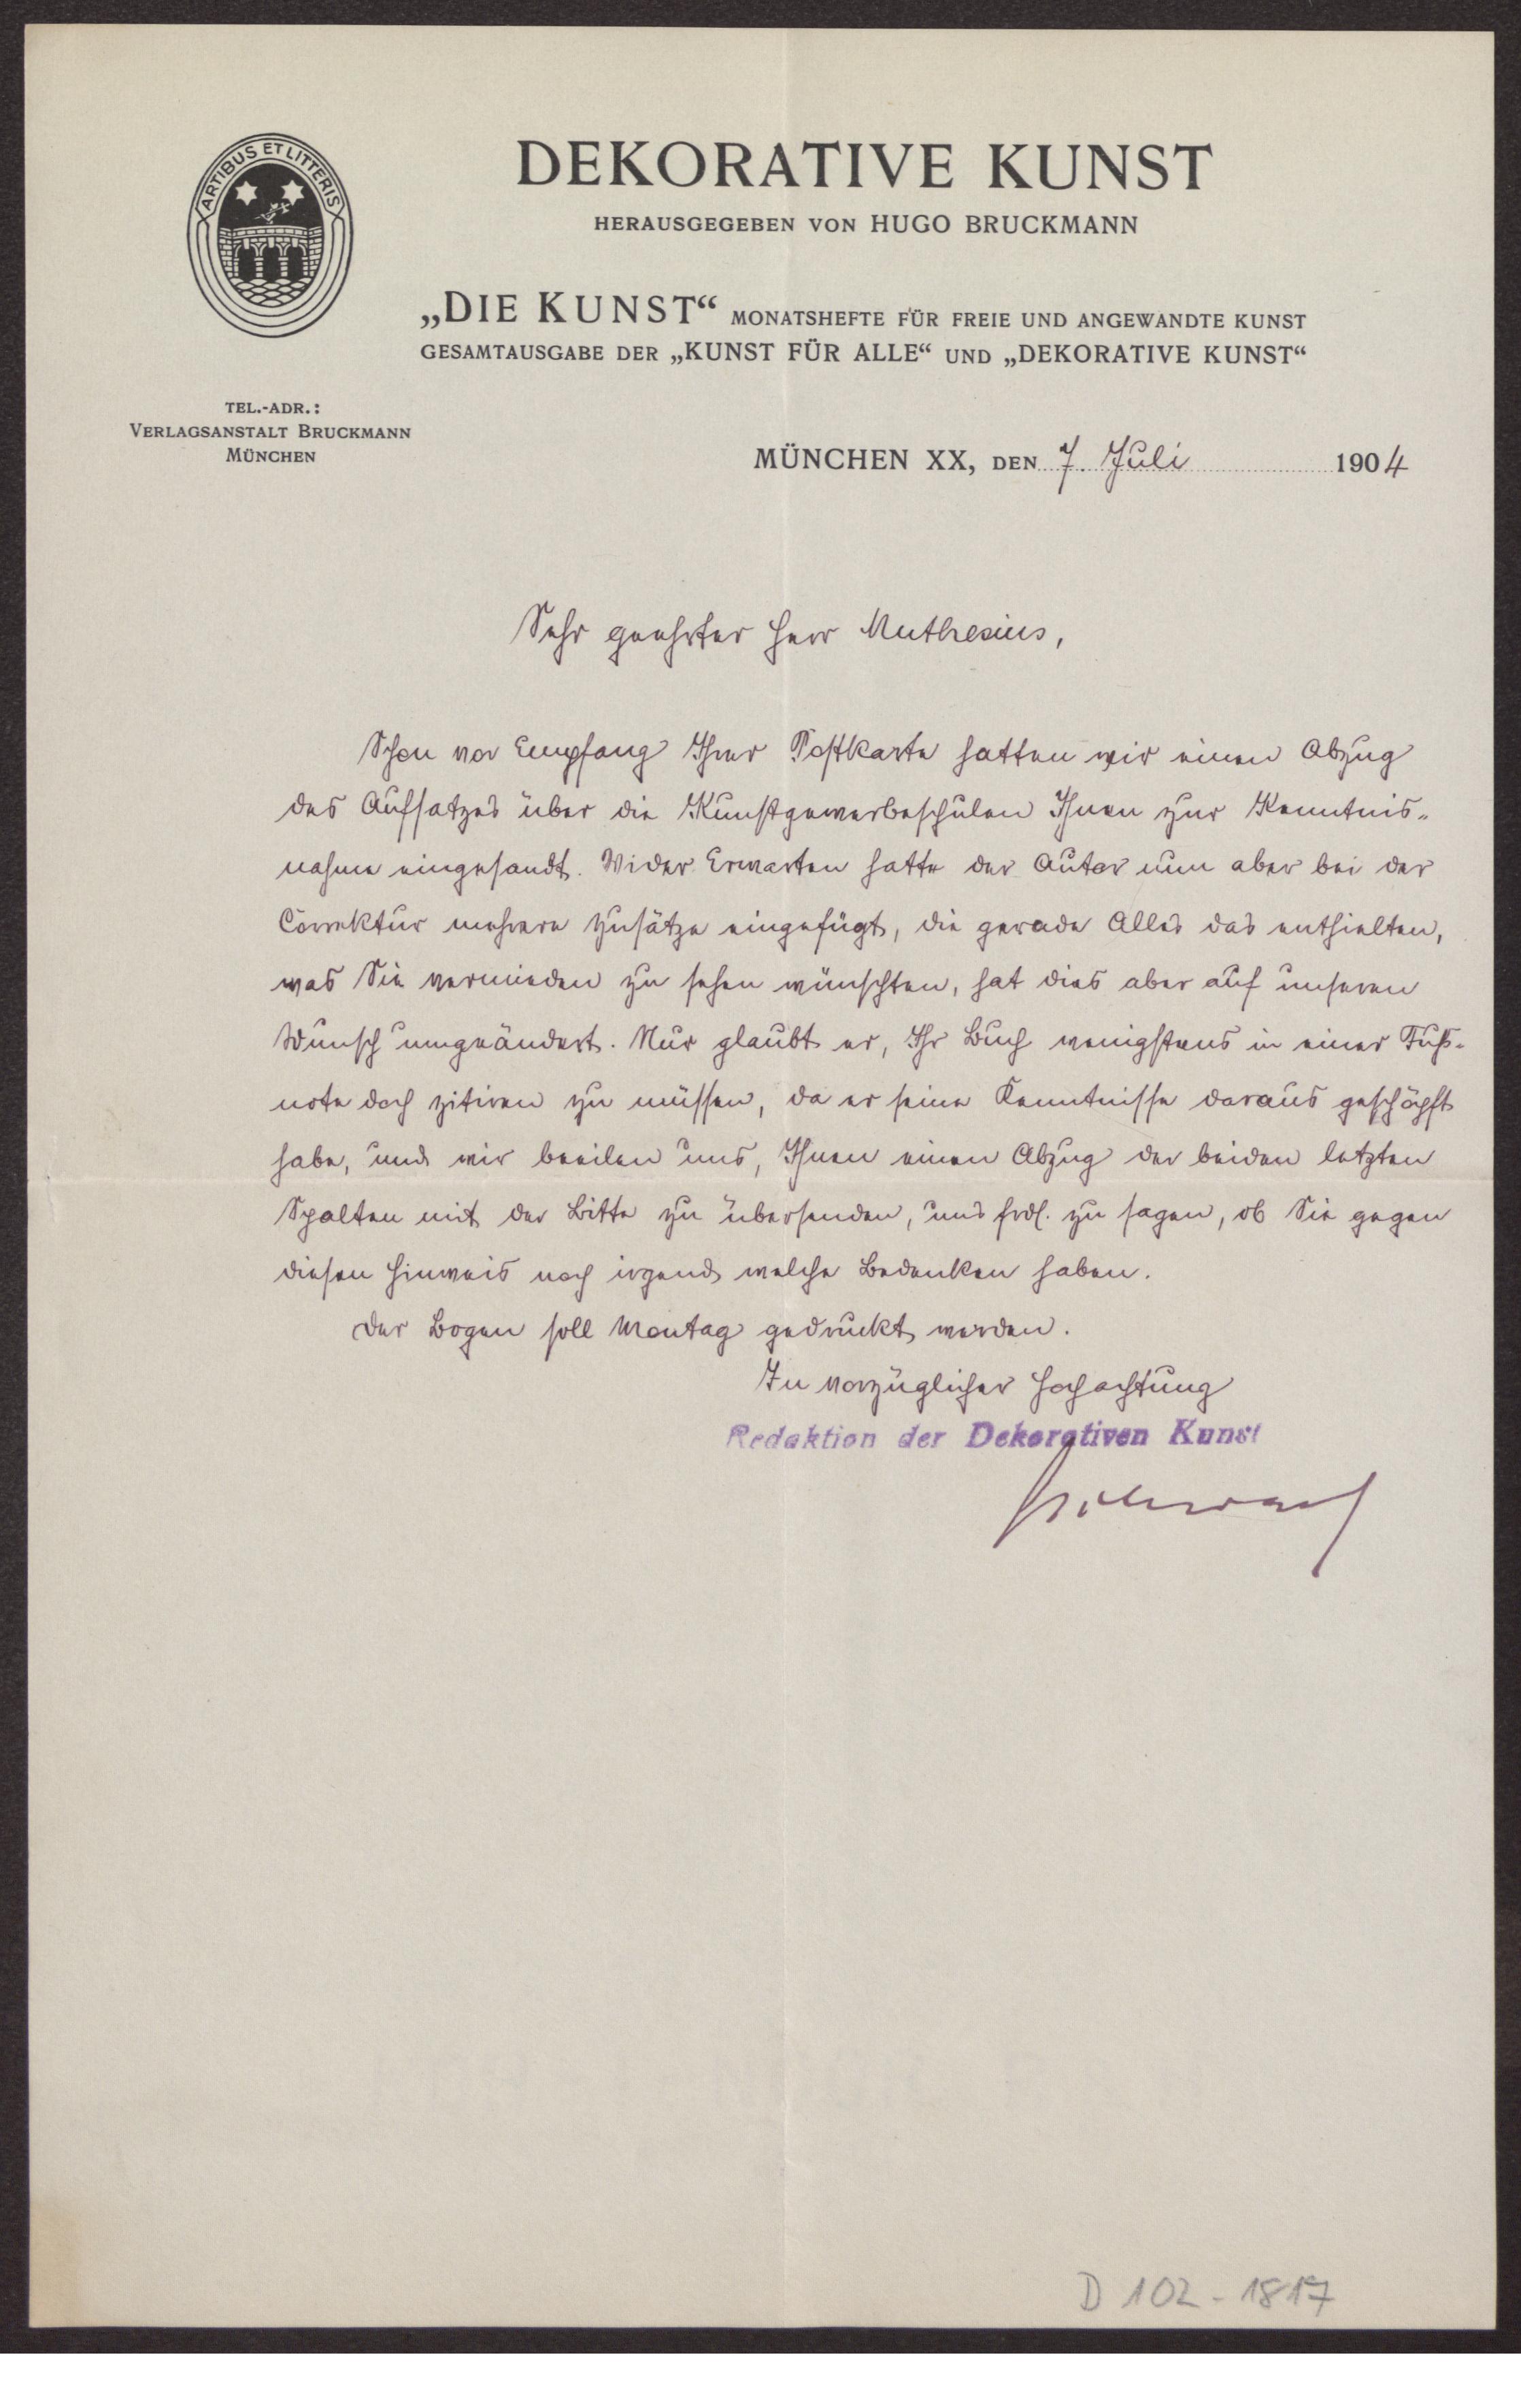 ARTIBUS ET LITTERIS
DEKORATIVE KUNST
HERAUSGEGEBEN VON HUGO BRUCKMANN
„DIE KUNST“ MONATSHEFTE FÜR FREIE UND ANGEWANDTE KUNST
GESAMTAUSGABE DER „KUNST FÜR ALLE“ UND „DEKORATIVE KUNST“
TEL.-ADR.:
VERLAGSANSTALT BRUCKMANN
MÜNCHEN
MÜNCHEN XX, DEN 7. Juli 1904
Sehr geehrter Herr Muthesius,
Schon vor Empfang Ihrer Postkarte hatten wir einen Abzug
des Aufsatzes über die Kunstgewerbeschulen Ihnen zur Kenntnis-
nahme eingesandt. Wider Erwarten hatte der Autor nun aber bei der
Correktur mehrere Zusätze eingefügt, die gerade Alles das enthielten,
was Sie vermieden zu sehen wünschten, hat dies aber auf unseren
Wunsch umgeändert. Nur glaubt er, Ihr Buch wenigstens in einer Fuß-
note doch zitiren zu müssen, da er seine Kenntnisse daraus geschöpft
habe, und wir beeilen uns, Ihnen einen Abzug der beiden letzten
Spalten mit der Bitte zu übersenden, uns frdl. zu sagen, ob Sie gegen
diesen Hinweis noch irgend welche Bedenken haben.
Der Bogen soll Montag gedruckt werden.
In vorzüglicher Hochachtung
Redaktion der Dekorativen Kunst
D 102-1817